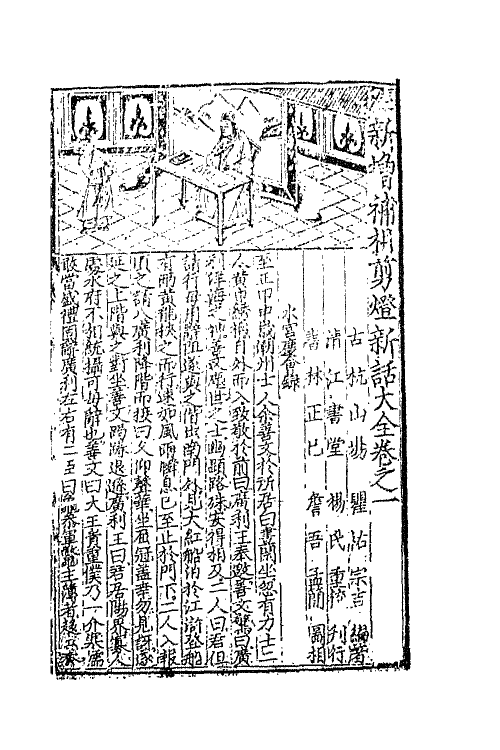 新增補相剪燈新話大全卷之一
古杭山陽 瞿佑宗吉 編著
清江書堂 楊氏重校 刊行
書林正己 詹吾孟簡 圖相
水宮慶會錄
至正甲申歲潮州士人余善文於所居白晝閒坐忽有力士二
人黃巾綉襖自外而入致敬於前曰廣利王奉邀善文驚曰廣
利洋海之神善文塵世之士幽顯路殊安得相及二人曰君但
請行毋用辭阻遂與之偕出南門外見大紅船泊於江滸登船
有兩黃龍挾之而行速如風雨瞬息已至止於門下二人入報
頃之請入廣利降階而接曰久仰聲華坐屈冠蓋幸勿見訝遂
延之上階與之對坐善文跼蹐退遜廣利王曰君居陽界寡人
處水府不相統攝可毋辭也善文曰大王貴重僕乃一介寒儒
敢當盛禮固辭廣利左右有二臣曰黿參軍鱉主簿者趨出奏